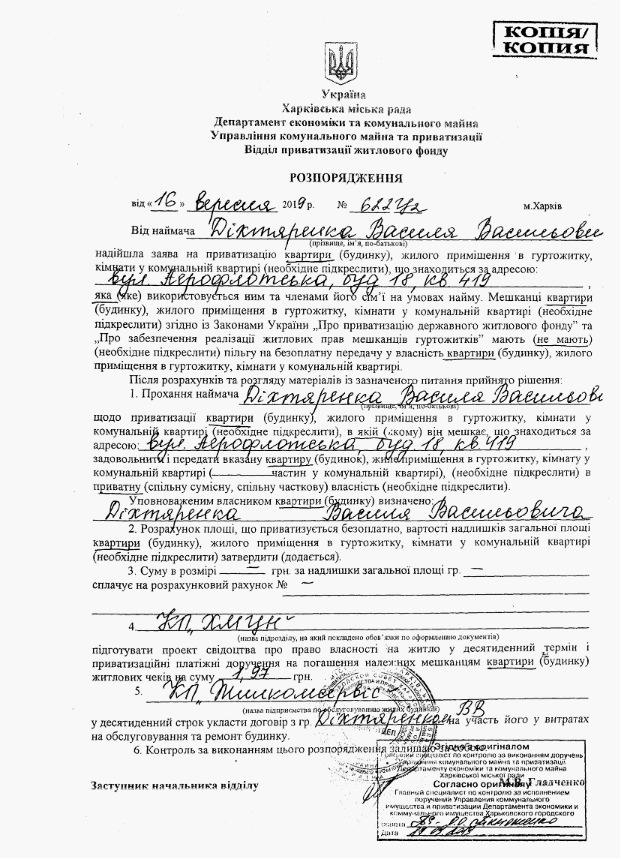 КОПІЯ/
КОПИЯ
Україна
Харківська міська рада
Департамент економіки та комунального майна
Управління комунального майна та приватизації
Відділ приватизації житлового фонду
РОЗПОРЯДЖЕННЯ
від «16» вересня 2019 р. № м.Харків
Від наймача Діхтяренка Василя Васильови
(прізвище, ім'я, по-батькові)
надійшла заява на приватизацію квартири (будинку), жилого приміщення в гуртожитку,
кімнати у комунальній квартирі (необхідне підкреслити), що знаходиться за адресою:
вул. Аерофлотська, буд 18, кв 419 ,
яка (яке) використовується ним та членами його сім'ї на умовах найму. Мешканці квартири
(будинку), жилого приміщення в гуртожитку, кімнати у комунальній квартирі (необхідне
підкреслити) згідно із Законами України „Про приватизацію державного житлового фонду" та
„Про забезпечення реалізації житлових прав мешканців гуртожитків" мають (не мають)
(необхідне підкреслити) пільгу на безоплатну передачу у власність квартири (будинку), жилого
приміщення в гуртожитку, кімнати у комунальній квартирі.
Після розрахунків та розгляду матеріалів із зазначеного питання прийнято рішення:
1. Прохання наймача Діхтяренка Василя Васильови
(прізвище, ім'я, по-батькові)
щодо приватизації квартири (будинку), жилого приміщення в гуртожитку, кімнати у
комунальній квартирі (необхідне підкреслити), в якій (якому) він мешкає, що знаходиться за
адресою: вул. Аерофлотська, буд. 18, кв 419 ,
задовольнити і передати вказану квартиру (будинок), жиле приміщення в гуртожитку, кімнату у
комунальній квартирі ( частин у комунальній квартирі), (необхідне підкреслити) в
приватну (спільну сумісну, спільну часткову) власність (необхідне підкреслити).
Уповноваженим власником квартири (будинку) визначено:
Діхтяренка Василя Васильовича
2. Розрахунок площі, що приватизується безоплатно, вартості надлишків загальної площі
квартири (будинку), жилого приміщення в гуртожитку, кімнати у комунальній квартирі
(необхідне підкреслити) затвердити (додається).
3. Суму в розмірі — грн. за надлишки загальної площі гр. —
сплачує на розрахунковий рахунок № —
4. КП „ХМЦН"
(назва підрозділу, на який покладено обов'язки по оформленню документів)
підготувати проект свідоцтва про право власності на житло у десятиденний термін і
приватизаційні платіжні доручення на погашення належних мешканцям квартири (будинку)
житлових чеків на суму 1,97 грн.
5. КП „Жилкомсервіс"
(назва підприємства по обслуговуванню жилих будинків)
у десятиденний строк укласти договір з гр. Діхтяренком ВВ на участь його у витратах
на обслуговування та ремонт будинку.
6. Контроль за виконанням цього розпорядження залишаю за собою
Згідно з оригіналом
Головний спеціаліст по контролю за виконанням доручень
Управління комунального майна та приватизації
Департаменту економіки та комунального майна
Харківської міської ради
Заступник начальника відділу М.В. Гладченко
Согласно оригиналу
Главный специалист по контролю за исполнением
поручений Управления коммунального
имущества и приватизации Департамента экономики и
коммунального имущества Харьковского городского
Дата